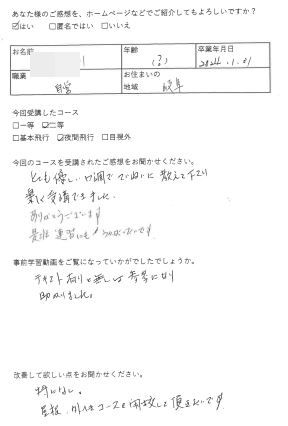 あなた様のご感想を、ホームページなどでご紹介してもよろしいですか？
☑はい　□匿名ではい　□いいえ
お名前　年齢　卒業年月日
(?)　2024.1.21
職業　自営　お住まいの地域　岐阜
今回受講したコース
□一等　☑二等
□基本飛行　☑夜間飛行　□目視外
今回のコースを受講されたご感想をお聞かせください。
とても優しい口調でていねいに教えて下さり
楽しく受講できました。
ありがとうございます
事前学習動画をご覧になっていかがでしたでしょうか。
テキスト
助かりました。
改善して欲しい点をお聞かせください。
特になし。
コースを開放して頂きたいです